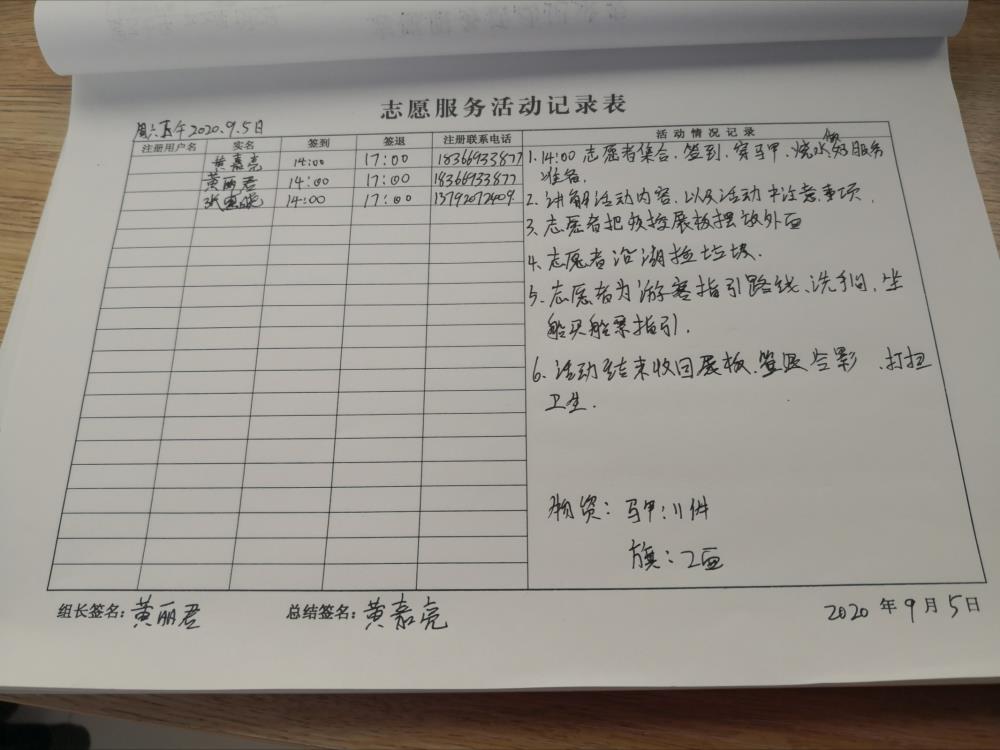 志愿服务活动记录表
周六下午2020.9.5日
注册用户名 实名 签到 签退 注册联系电话 活动情况记录
黄嘉亮 14:00 17:00 18366933877
黄丽君 14:00 17:00 18366933877
张 14:00 17:00 13792072409
1.14:00志愿者集合、签到、穿马甲、烧水做好服务
准备。
2.讲解活动内容,以及活动中注意事项。
3.志愿者把展板摆放外面
4.志愿者沿湖捡垃圾.
5.志愿者为游客指引路线、洗手间,坐
船买船票指引.
6.活动结束收回展板、签退合影、打扫
卫生.
物资:马甲:11件
旗:2面
组长签名:黄丽君 总结签名:黄嘉亮 2020年9月5日